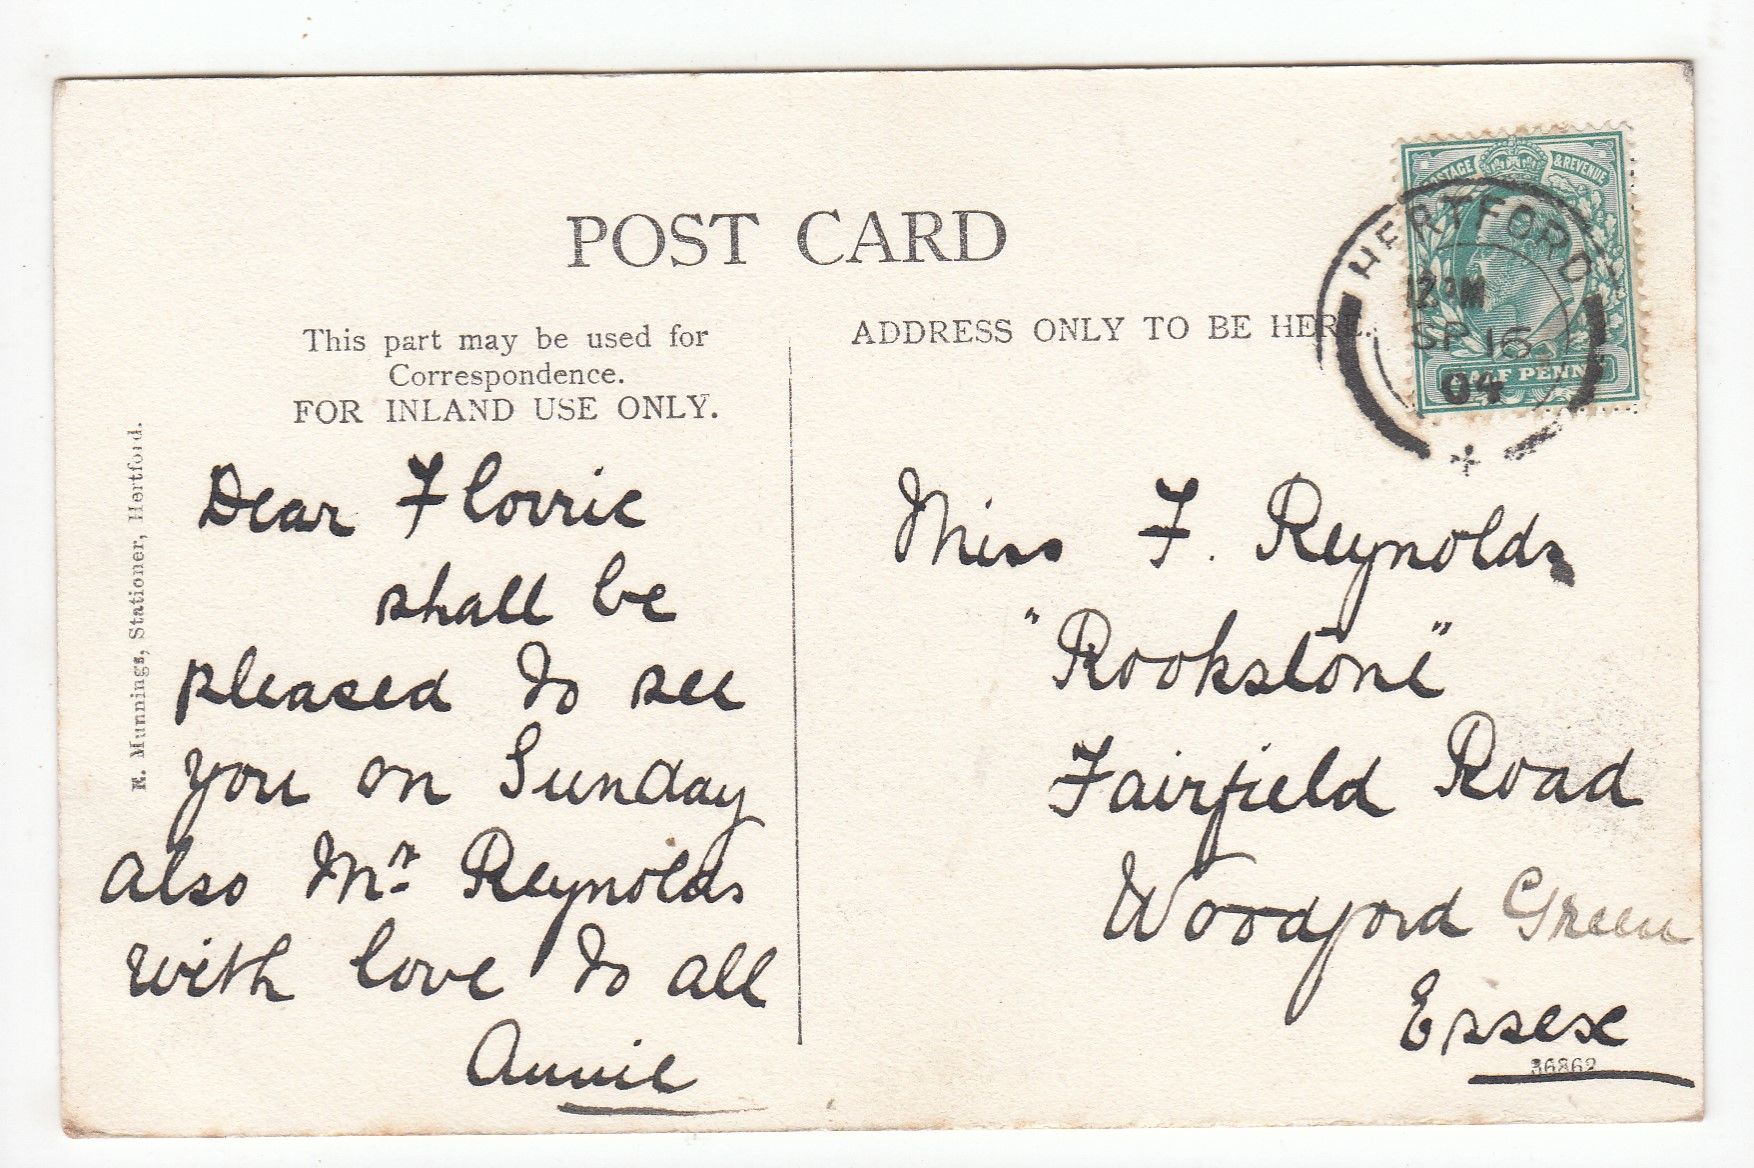 POST CARD
This part may be used for
Correspondence.
FOR INLAND USE ONLY.
ADDRESS ONLY TO BE HERE.
POSTAGE & REVENUE
HALF PENNY
HERTFORD
12 PM
SP 16
04
R. Munnings, Stationer, Hertford.
Dear Florrie
shall be
pleased to see
you on Sunday
also Mr. Reynolds
with love to all
Annie
Miss F. Reynolds
"Rookstone"
Fairfield Road
Woodford Green
Essex
36862